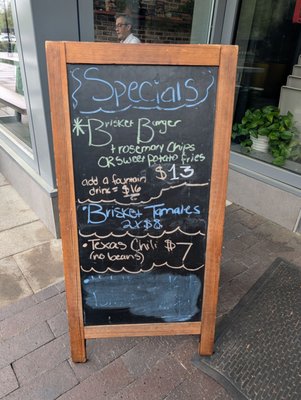 Specials
*Brisket Burger
+ rosemary chips
OR sweet potato fries
$13
add a fountain
drink = $16
• Brisket Tamales
2 x $8
• Texas Chili $7
(no beans)